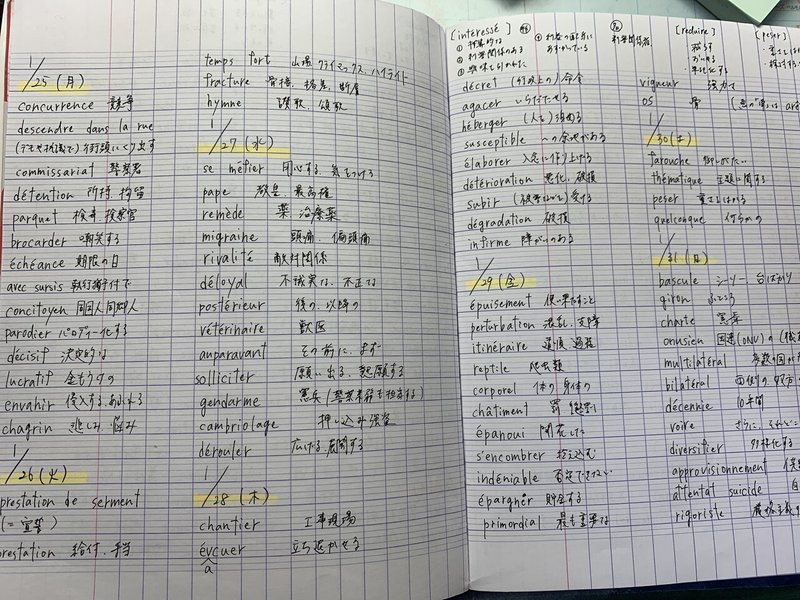 1/25 (月)
concurrence 競争
descendre dans la rue
(デモや抗議で)街頭にくり出す
commissariat 警察署
détention 所持、拘留
parquet 検事、検察官
brocarder 嘲笑する
échéance 期限の日
avec sursis 執行猶予付で
concitoyen 同国人、同郷人
parodier パロディー化する
décisif 決定的な
lucratif 金もうけの
envahir 侵入する、あふれる
chagrin 悲しみ、悩み
1/26 (火)
prestation de serment
(= 宣誓)
prestation 給付、手当
temps fort 山場 クライマックス、ハイライト
fracture 骨折、格差、断層
hymne 讃歌、頌歌
1/27 (水)
se méfier 用心する、気をつける
pape 教皇、最高権
remède 薬 治療薬
migraine 頭痛、偏頭痛
rivalité 敵対関係
déloyal 不誠実な、不正な
postérieur 後の、以降の
vétérinaire 獣医
auparavant その前に、まず
solliciter 願い出る、懇願する
gendarme 憲兵(警察業務も担当する)
cambriolage 押し込み強盗
dérouler 広げる、展開する
1/28 (木)
chantier 工事現場
évcuer 立ち退かせる
a
[intéressé]
利害関係者
décret (行政上の)命令
agacer いらだたせる
héberger (人を)泊める
susceptible 〜の余地がある
élaborer 入念に作り上げる
détérioration 悪化、破損
subir (被害などを)受ける
dégradation 破損
infirme 障がいのある
1/29 (金)
épuisement 使い果たすこと
perturbation 混乱、支障
itinéraire 道順 過程
reptile 爬虫類
corporel 体の 身体の
châtiment 罰 懲罰
épanoui 開花した
s'encombrer 抱え込む
indéniable 否定できない
épargner 貯金する
primordial 最も重要な
[réduire]
減らす
[peser]
vigueur 強力で
os 骨
1/30 (土)
farouche
thématique 主題に関する
peser 重さをはかる
quelconque 何らかの
1/31 (日)
bascule シーソー、台ばかり
giron ふところ
charte 憲章
onusien 国連(ONU)の
multilatéral
bilatéral
décennie 10年間
voire
diversifier 多様化する
approvisionnement
attentat suicide
rigoriste